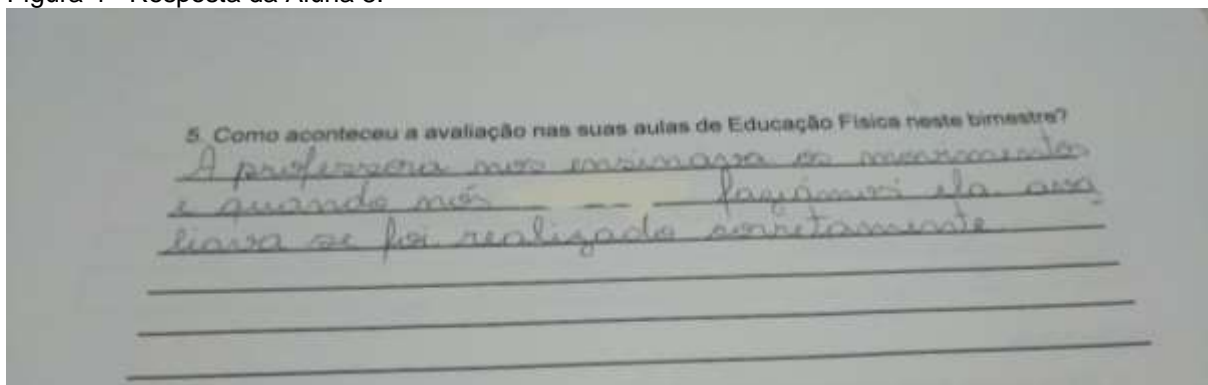 5. Como aconteceu a avaliação nas suas aulas de Educação Física neste bimestre?
A professora nos ensinava os movimentos
e quando nós fazíamos ela ava
liava se foi realizado corretamente